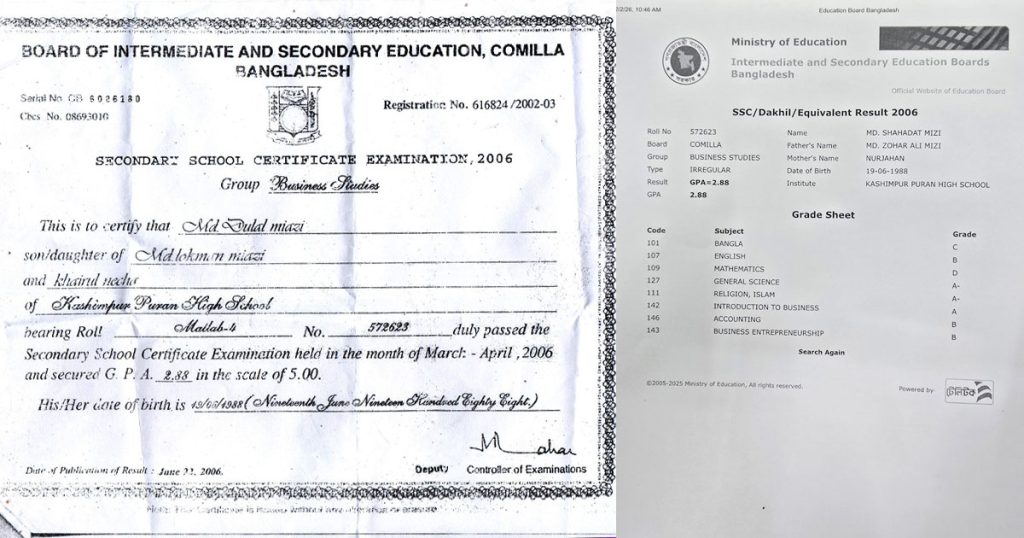 BOARD OF INTERMEDIATE AND SECONDARY EDUCATION, COMILLA
BANGLADESH
Serial No. GB 6026180
Cbcs No. 08693010
Registration No. 616824 /2002-03
SECONDARY SCHOOL CERTIFICATE EXAMINATION, 2006
Group Business Studies
This is to certify that Md Dulal miazi
son/daughter of Md lokman miazi
and khairul necha
of Kashimpur Puran High School
bearing Roll Matlab-4 No. 572623 duly passed the
Secondary School Certificate Examination held in the month of March - April, 2006
and secured G. P. A. 2.88 in the scale of 5.00.
His/Her date of birth is 19/06/1988 (Nineteenth June Nineteen Hundred Eighty Eight.)
Date of Publication of Result : June 22, 2006.
Deputy Controller of Examinations
Note: This Certificate is issued without any alteration or erasure
/2/26, 10:46 AM
Education Board Bangladesh
Ministry of Education
Intermediate and Secondary Education Boards
Bangladesh
Official Website of Education Board
SSC/Dakhil/Equivalent Result 2006
Roll No 572623 Name MD. SHAHADAT MIZI
Board COMILLA Father's Name MD. ZOHAR ALI MIZI
Group BUSINESS STUDIES Mother's Name NURJAHAN
Type IRREGULAR Date of Birth 19-06-1988
Result GPA=2.88 Institute KASHIMPUR PURAN HIGH SCHOOL
GPA 2.88
Grade Sheet
Code Subject Grade
101 BANGLA C
107 ENGLISH B
109 MATHEMATICS D
127 GENERAL SCIENCE A-
111 RELIGION, ISLAM A-
142 INTRODUCTION TO BUSINESS A
146 ACCOUNTING B
143 BUSINESS ENTREPRENEURSHIP B
Search Again
©2005-2025 Ministry of Education, All rights reserved.
Powered by